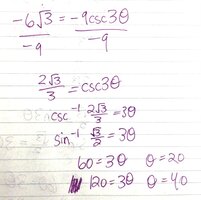 -6√3 = -9csc3θ
-9 -9
2√3/3 = csc3θ
csc⁻¹ 2√3/3 = 3θ
sin⁻¹ √3/2 = 3θ
60 = 3θ θ = 20
120 = 3θ θ = 40